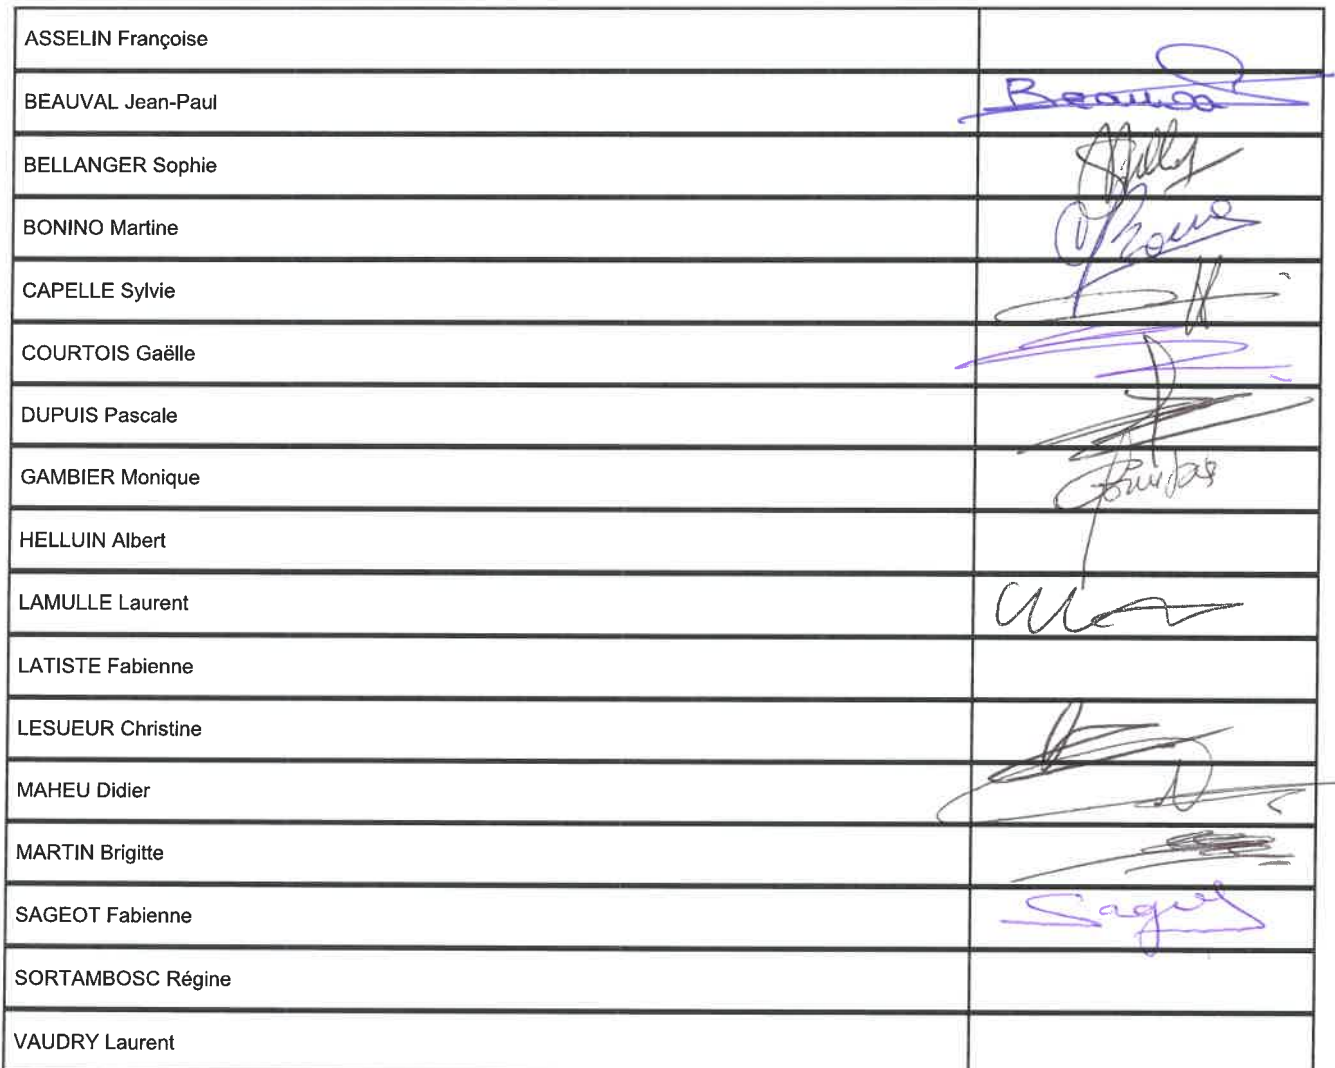 ASSELIN Françoise
BEAUVAL Jean-Paul
BELLANGER Sophie
BONINO Martine
CAPELLE Sylvie
COURTOIS Gaëlle
DUPUIS Pascale
GAMBIER Monique
HELLUIN Albert
LAMULLE Laurent
LATISTE Fabienne
LESUEUR Christine
MAHEU Didier
MARTIN Brigitte
SAGEOT Fabienne
SORTAMBOSC Régine
VAUDRY Laurent